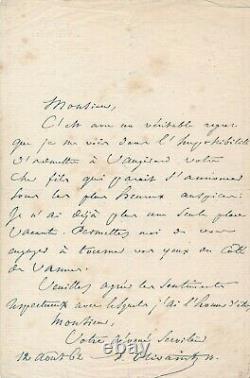 Monsieur,
C'est avec un véritable regret
que je me vois dans l'impossibilité
d'admettre à Vaugirard votre
cher fils qui paraît s'annoncer
sous les plus heureux auspices.
Je n'ai déjà plus une seule place
vacante. Permettez moi de vous
engager à tourner vos yeux du côté
de Vannes.
Veuillez agréer les sentiments
respectueux avec lesquels j'ai l'honn d'être,
Monsieur,
Votre dévoué Serviteur
12 août 62